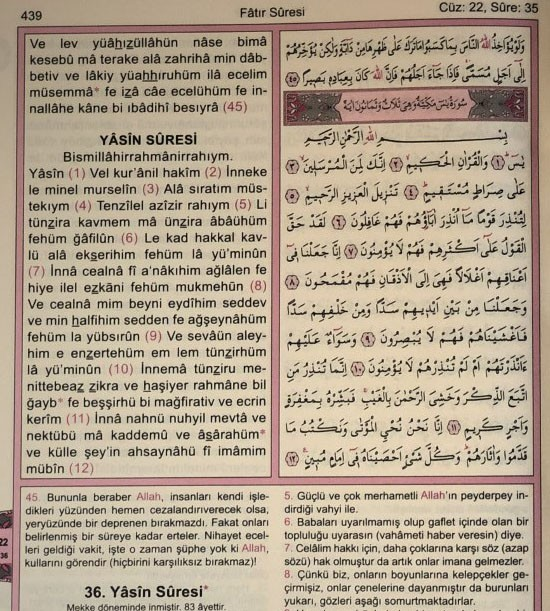 439
Fâtır Sûresi
Cüz: 22, Sûre: 35
Ve lev yüâhızüllâhün nâse bimâ
kesebû mâ terake alâ zahrihâ min dâb-
betiv ve lâkiy yüahhıruhüm ilâ ecelim
müsemmâ* fe izâ câe ecelühüm fe in-
nallâhe kâne bi ıbâdihî besıyrâ (45)
YÂSİN SÛRESİ
Bismillâhirrahmânirrahıym.
Yâsîn (1) Vel kur'ânil hakîm (2) İnneke
le minel murselîn (3) Alâ sıratım müs-
tekıym (4) Tenzîlel azîzir rahıym (5) Li
tünzira kavmem mâ ünzira âbâühüm
fehüm ğâfilûn (6) Le kad hakkal kav-
lü alâ ekserihim fehüm lâ yü'minûn
(7) İnnâ cealnâ fî a'nâkıhim ağlâlen fe
hiye ilel ezkâni fehüm mukmehûn (8)
Ve cealnâ mim beyni eydîhim seddev
ve min halfihim sedden fe ağşeynâhüm
fehüm la yübsırûn (9) Ve sevâün aley-
him e enzertehüm em lem tünzirhüm
lâ yü'minûn (10) İnnemâ tünziru me-
nittebeaz zikra ve haşiyer rahmâne bil
ğayb* fe beşşirhü bi mağfirativ ve ecrin
kerîm (11) İnnâ nahnü nuhyil mevtâ ve
nektübü mâ kaddemû ve âsârahüm*
ve külle şey'in ahsaynâhü fî imâmim
mübîn (12)
وَلَوْ يُؤَاخِذُ اللهُ النَّاسَ بِمَا كَسَبُوا مَا تَرَكَ عَلَى ظَهْرِهَا مِنْ دَابَّةٍ وَلَكِنْ يُؤَخِّرُهُمْ
إِلَى أَجَلٍ مُسَمًّى فَإِذَا جَاءَ أَجَلُهُمْ فَإِنَّ اللهَ كَانَ بِعِبَادِهِ بَصِيرًا ﴿٤٥﴾
سُورَةُ يٰسٓ مَكِّيَّةٌ وَهِيَ ثَلَاثٌ وَثَمَانُونَ آيَةً
بِسْمِ اللهِ الرَّحْمٰنِ الرَّحِيمِ
يٰسٓ ﴿١﴾ وَالْقُرْاٰنِ الْحَكِيمِ ﴿٢﴾ اِنَّكَ لَمِنَ الْمُرْسَلِينَ ﴿٣﴾
عَلٰى صِرَاطٍ مُسْتَقِيمٍ ﴿٤﴾ تَنْزِيلَ الْعَزِيزِ الرَّحِيمِ ﴿٥﴾
لِتُنْذِرَ قَوْمًا مَا اُنْذِرَ اٰبَاؤُهُمْ فَهُمْ غَافِلُونَ ﴿٦﴾ لَقَدْ حَقَّ
الْقَوْلُ عَلٰى اَكْثَرِهِمْ فَهُمْ لَا يُؤْمِنُونَ ﴿٧﴾ اِنَّا جَعَلْنَا فِى
اَعْنَاقِهِمْ اَغْلَالًا فَهِىَ اِلَى الْاَذْقَانِ فَهُمْ مُقْمَحُونَ ﴿٨﴾
وَجَعَلْنَا مِنْ بَيْنِ اَيْدِيهِمْ سَدًّا وَمِنْ خَلْفِهِمْ سَدًّا
فَاَغْشَيْنَاهُمْ فَهُمْ لَا يُبْصِرُونَ ﴿٩﴾ وَسَوَاءٌ عَلَيْهِمْ
ءَاَنْذَرْتَهُمْ اَمْ لَمْ تُنْذِرْهُمْ لَا يُؤْمِنُونَ ﴿١٠﴾ اِنَّمَا تُنْذِرُ مَنِ
اتَّبَعَ الذِّكْرَ وَخَشِىَ الرَّحْمٰنَ بِالْغَيْبِ فَبَشِّرْهُ بِمَغْفِرَةٍ
وَاَجْرٍ كَرِيمٍ ﴿١١﴾ اِنَّا نَحْنُ نُحْىِ الْمَوْتٰى وَنَكْتُبُ مَا
قَدَّمُوا وَاٰثَارَهُمْ وَكُلَّ شَىْءٍ اَحْصَيْنَاهُ فِى اِمَامٍ مُبِينٍ ﴿١٢﴾
45. Bununla beraber Allah, insanları kendi işle-
dikleri yüzünden hemen cezalandırıverecek olsa,
yeryüzünde bir deprenen bırakmazdı. Fakat onları
belirlenmiş bir süreye kadar erteler. Nihayet ecel-
leri geldiği vakit, işte o zaman şüphe yok ki Allah,
kullarını görendir (hiçbirini karşılıksız bırakmaz)!
36. Yâsîn Sûresi*
Mekke döneminde inmiştir. 83 âyettir.
5. Güçlü ve çok merhametli Allah'ın peyderpey in-
dirdiği vahyi ile.
6. Babaları uyarılmamış olup gaflet içinde olan bir
topluluğu uyarasın (vahâmeti haber veresin) diye.
7. Celâlim hakkı için, daha çoklarına karşı söz (azap
sözü) hak olmuştur da artık onlar imana gelmezler.
8. Çünkü biz, onların boyunlarına kelepçekler ge-
çirmişiz, onlar çenelerine dayanmıştır da burunları
yukarı, gözleri aşağı somurtmaktadırlar.
22
36